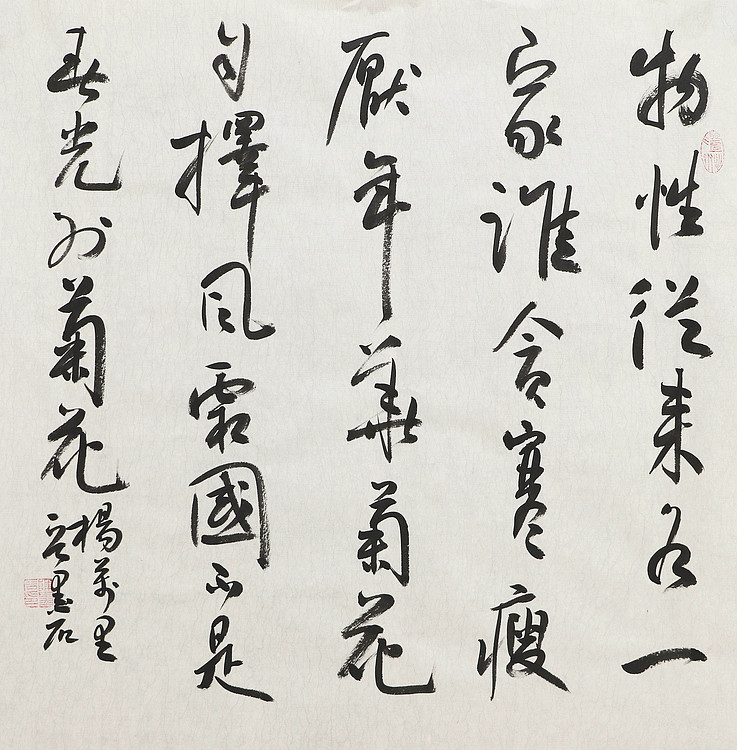 物性從來各一
家誰貪寒瘦
厭年華菊花
自擇風霜國不是
春光外菊花
楊萬里
墨石